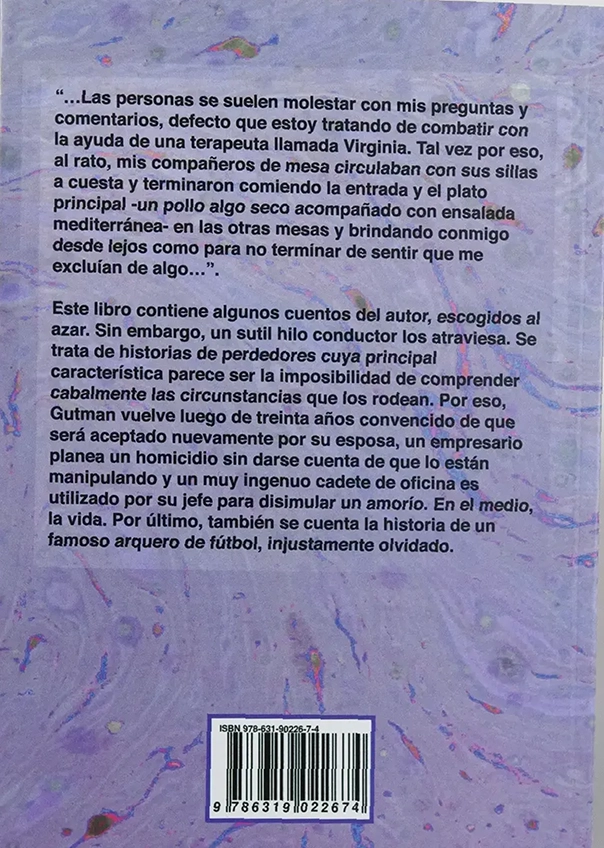 “...Las personas se suelen molestar con mis preguntas y
comentarios, defecto que estoy tratando de combatir con
la ayuda de una terapeuta llamada Virginia. Tal vez por eso,
al rato, mis compañeros de mesa circulaban con sus sillas
a cuesta y terminaron comiendo la entrada y el plato
principal -un pollo algo seco acompañado con ensalada
mediterránea- en las otras mesas y brindando conmigo
desde lejos como para no terminar de sentir que me
excluían de algo...”.
Este libro contiene algunos cuentos del autor, escogidos al
azar. Sin embargo, un sutil hilo conductor los atraviesa. Se
trata de historias de perdedores cuya principal
característica parece ser la imposibilidad de comprender
cabalmente las circunstancias que los rodean. Por eso,
Gutman vuelve luego de treinta años convencido de que
será aceptado nuevamente por su esposa, un empresario
planea un homicidio sin darse cuenta de que lo están
manipulando y un muy ingenuo cadete de oficina es
utilizado por su jefe para disimular un amorío. En el medio,
la vida. Por último, también se cuenta la historia de un
famoso arquero de fútbol, injustamente olvidado.
ISBN 978-631-90226-7-4
9 786319 022674